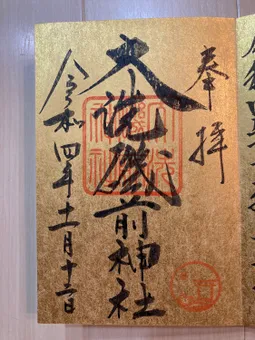 奉拝
大洗磯前神社
令和四年十二月十三日